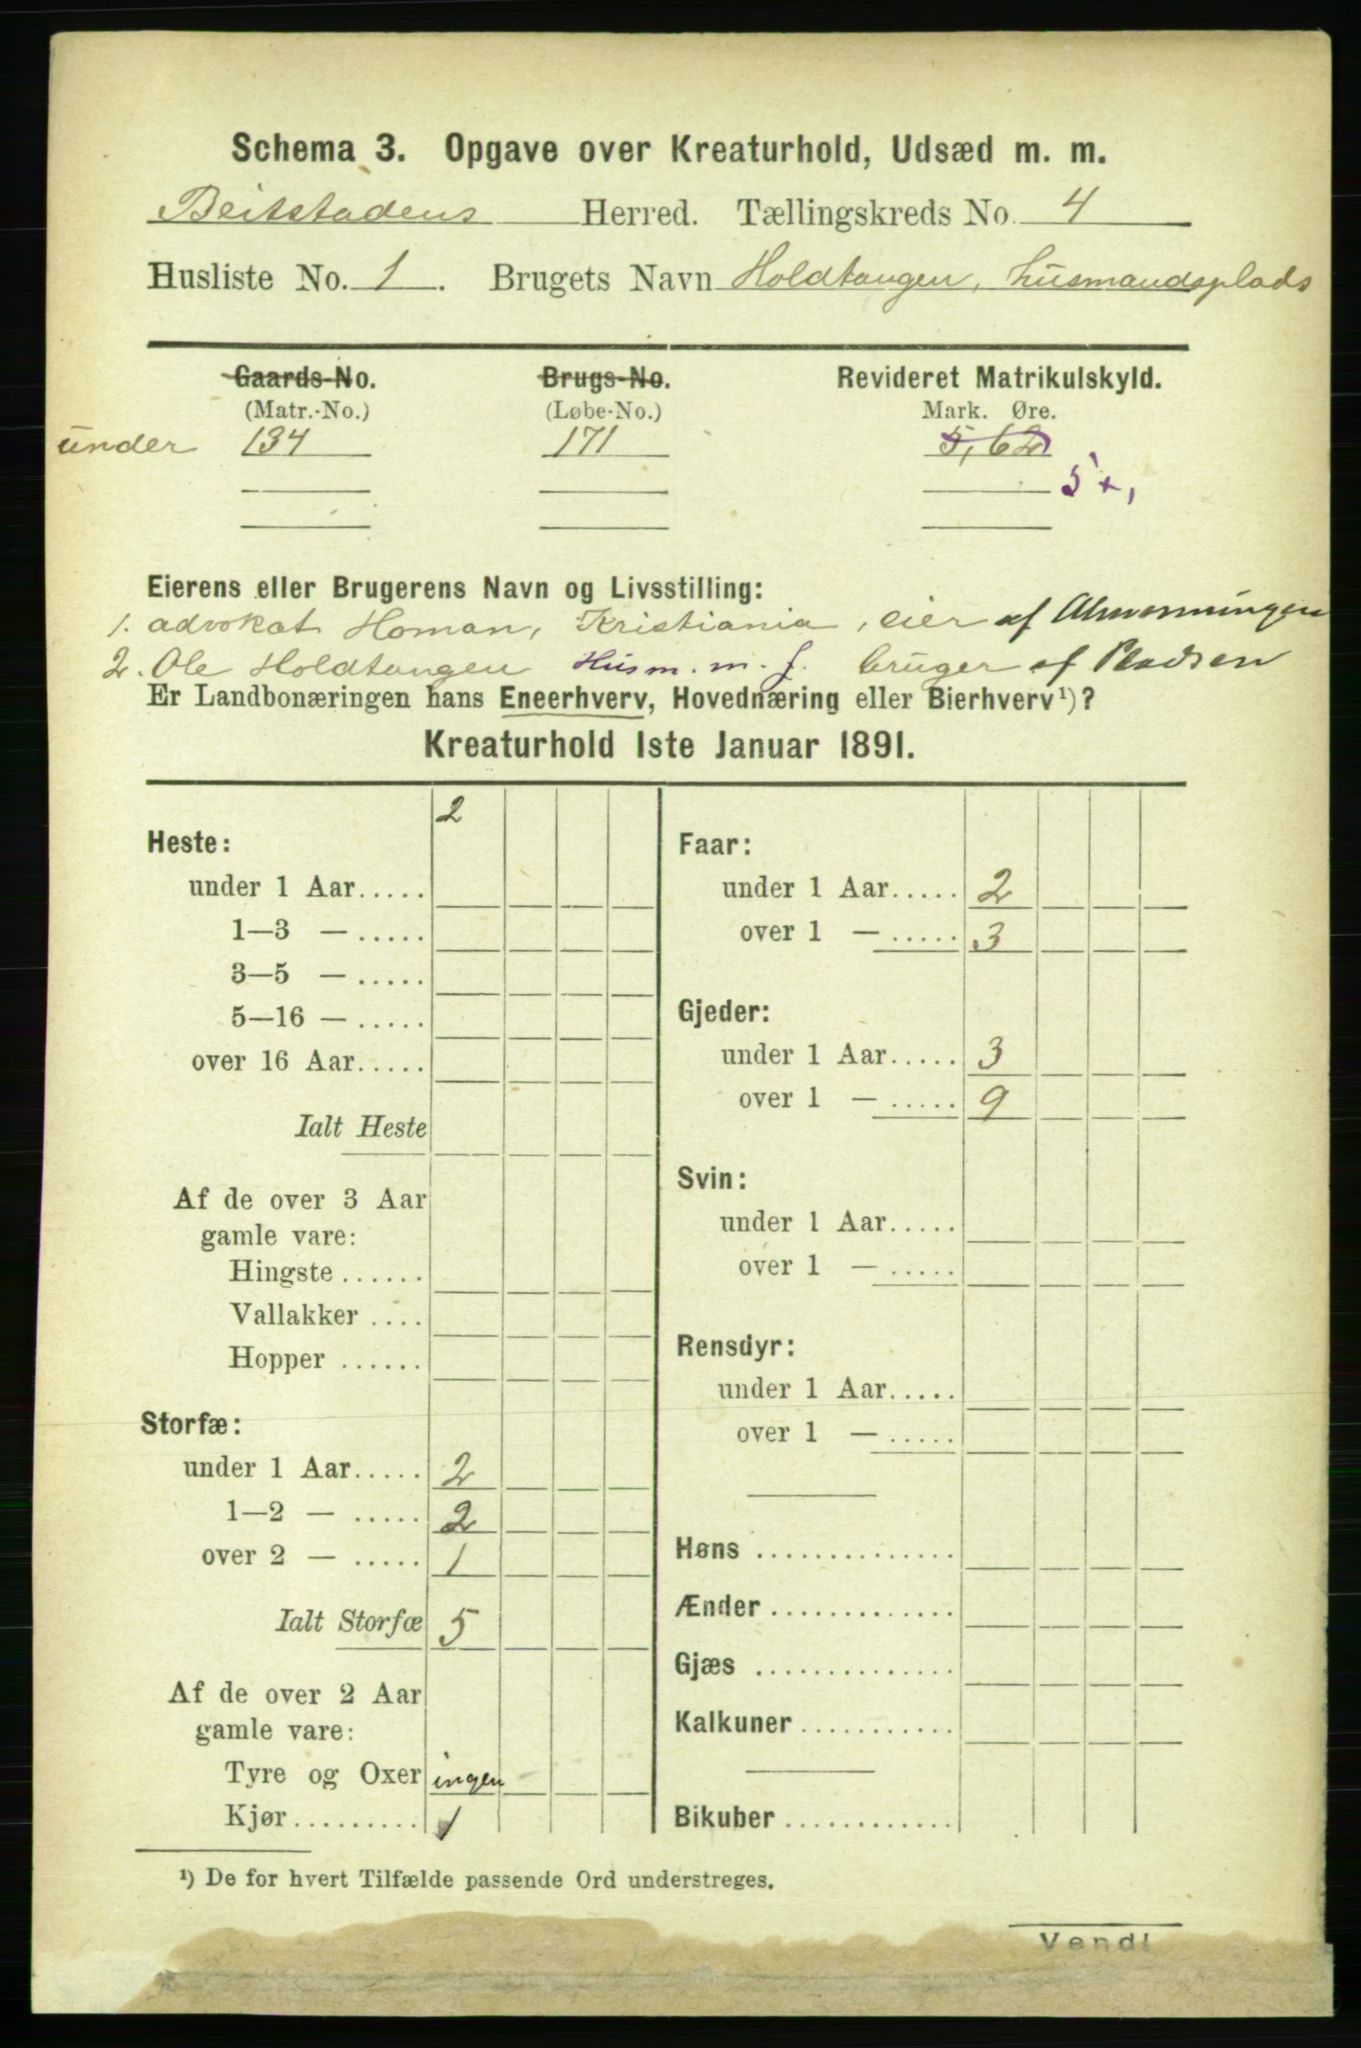 Schema 3. Opgave over Kreaturhold, Udsæd m. m.
Beitstadens Herred. Tællingskreds No. 4
Husliste No. 1. Brugets Navn Holdtangen, husmandsplads
Gaards-No. Brugs-No. Revideret Matrikulskyld.
(Matr.-No.) (Løbe-No.) Mark. Øre.
under 134 171 5,62
Eierens eller Brugerens Navn og Livsstilling:
1. advokat Homan, Kristiania, eier af Almenningen
2. Ole Holdtangen Husm. m. j. bruger af Pladsen
Er Landbonæringen hans Eneerhverv, Hovednæring eller Bierhverv¹)?
Kreaturhold 1ste Januar 1891.
2
Heste:
under 1 Aar.....
1—3 — .....
3—5 — .....
5—16 — .....
over 16 Aar.....
Ialt Heste
Af de over 3 Aar
gamle vare:
Hingste ......
Vallakker ....
Hopper ......
Storfæ:
under 1 Aar..... 2
1—2 — ..... 2
over 2 — ..... 1
Ialt Storfæ 5
Af de over 2 Aar
gamle vare:
Tyre og Oxer ingen
Kjør......... 1
Faar:
under 1 Aar..... 2
over 1 — ..... 3
Gjeder:
under 1 Aar..... 3
over 1 — ..... 9
Svin:
under 1 Aar.....
over 1 — .....
Rensdyr:
under 1 Aar.....
over 1 — .....
Høns ..............
Ænder .............
Gjæs ..............
Kalkuner ...........
Bikuber ............
¹) De for hvert Tilfælde passende Ord understreges.
Vend!